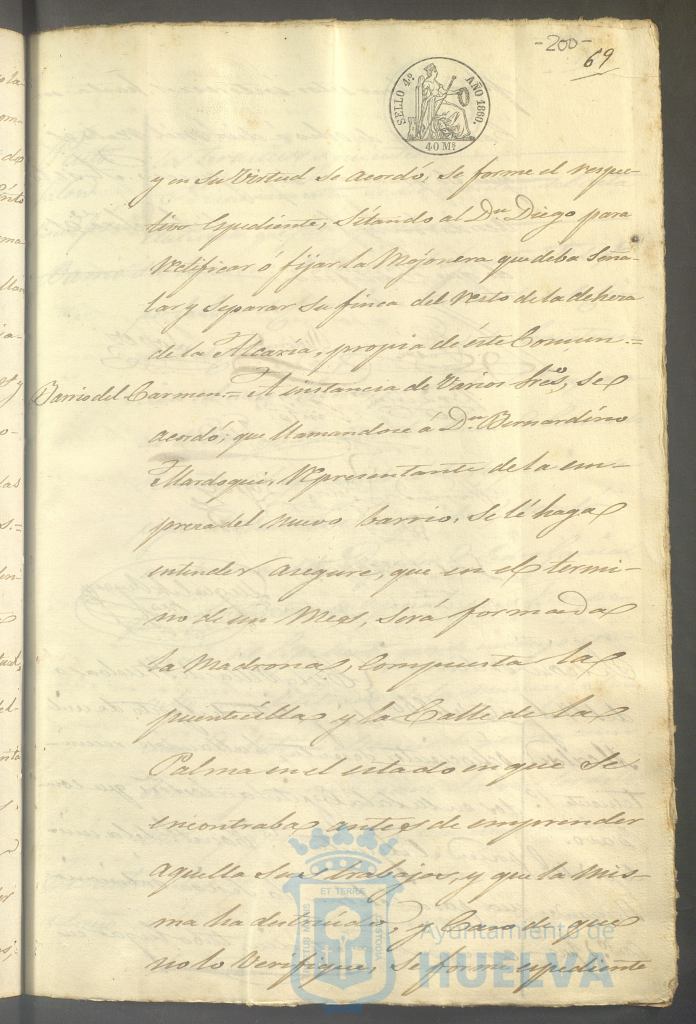 -200-
69
SELLO 4º AÑO 1860.
40 Ms
y en su virtud se acordó, se forme el respec-
tivo Espediente, sitando al Dn. Diego para
retificar ó fijar la Mojonera que deba seña-
lar y separar su finca del resto de la dehesa
de la Alcaria, propia de éste Comun.=
Barrio del Carmen.= A instancia de varios Sres, se
acordó; que llamandose á Dn. Bernardino
Mardoqui, representante de la em-
presa del nuevo barrio, se lé haga
entender asegure, que en el termi-
no de un Mes, será formada
la Madrona, compuesta la
puentecilla y la Calle de la
Palma en el estado en que se
encontraba antes de emprender
aquella sus trabajos, y que la mis-
ma ha destruido, y caso de que
no lo verifique, se forme espediente
ET TERRE
Ayuntamiento de
HUELVA